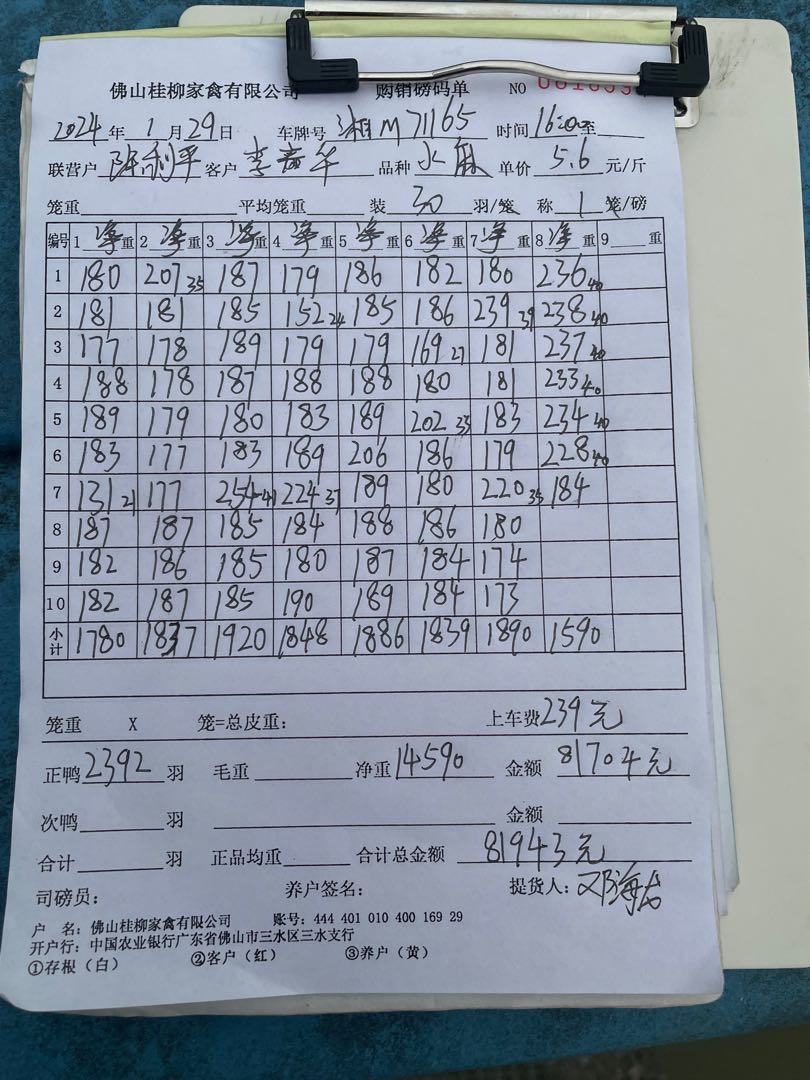 佛山桂柳家禽有限公司 购销磅码单 NO
2024年1月29日 车牌号 湘M71165 时间16:20至
联营户 陈利平 客户 李 华 品种 水鸭 单价 5.6 元/斤
笼重 平均笼重 装 30 羽/笼 称 1 笼/磅
编号 1 净重 2 净重 3 净重 4 净重 5 净重 6 净重 7 净重 8 净重 9 重
1 180 207 35 187 179 186 182 180 236 40
2 181 181 185 152 24 185 186 239 39 238 40
3 177 178 189 179 179 169 27 181 237 40
4 188 178 187 188 188 180 181 233 40
5 189 179 180 183 189 202 33 183 234 40
6 183 177 183 189 206 186 179 228 40
7 131 21 177 254 41 224 37 189 180 220 35 184
8 187 187 185 184 188 186 180
9 182 186 185 180 187 184 174
10 182 187 185 190 189 184 173
小计 1780 1837 1920 1848 1886 1839 1890 1590
笼重 X 笼=总皮重： 上车费239元
正鸭2392羽 毛重 净重14590 金额 81704元
次鸭 羽 金额
合计 羽 正品均重 合计总金额 81943元
司磅员： 养户签名： 提货人：邓海龙
户 名：佛山桂柳家禽有限公司 账号：444 401 010 400 169 29
开户行：中国农业银行广东省佛山市三水区三水支行
①存根（白） ②客户（红） ③养户（黄）